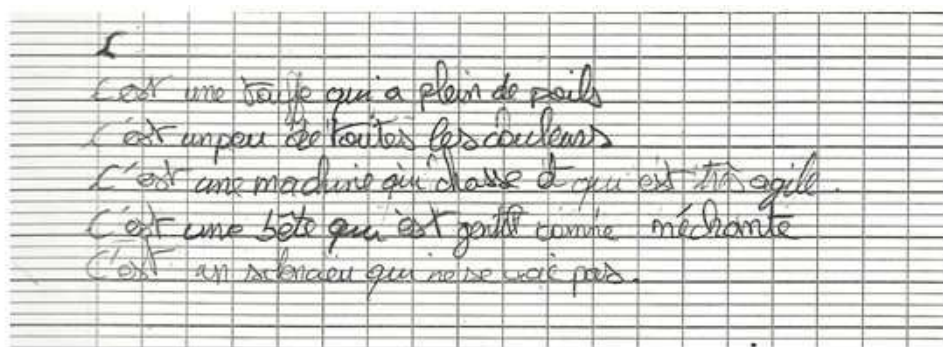 C
C'est une touffe qui a plein de poils
C'est un peu de toutes les couleurs
C'est une machine qui chasse et qui est très agile.
C'est une bête qui est gentil comme méchante
C'est un qui ne se voit pas.